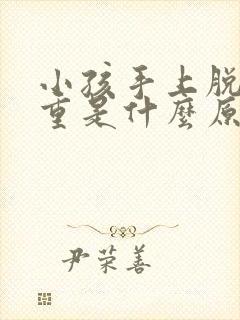 小孩手上脱
重是什麼原
尹荣善